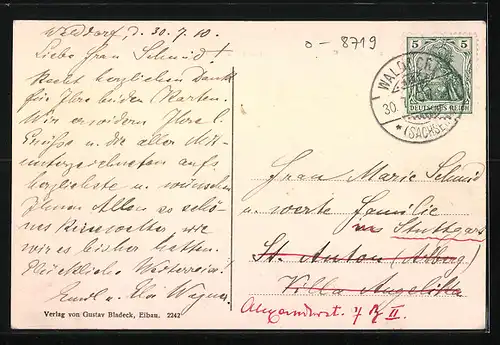 Walddorf, d. 30.7.10.
Liebe Frau Schmid!
Recht herzlichen Dank
für Ihre beiden Karten.
Wir erwidern Ihre l.
Grüße u. die aller Mit-
unterzeichneten aufs
herzlichste u. wünschen
Ihnen Allen so schö-
nes Reisewetter wie
wir es bisher hatten.
Glückliche Weiterreise!
Emil u. Wagner.
Verlag von Gustav Bladeck, Eibau. 2242
0 - 8719
5 5
DEUTSCHES REICH
WALDDORF
30.7.
* (SACHSEN)
Frau Marie Schmid
u. werte Familie
Stuttgart
St. Anton (Arlberg)
Villa Angelika
Alexanderst. II.